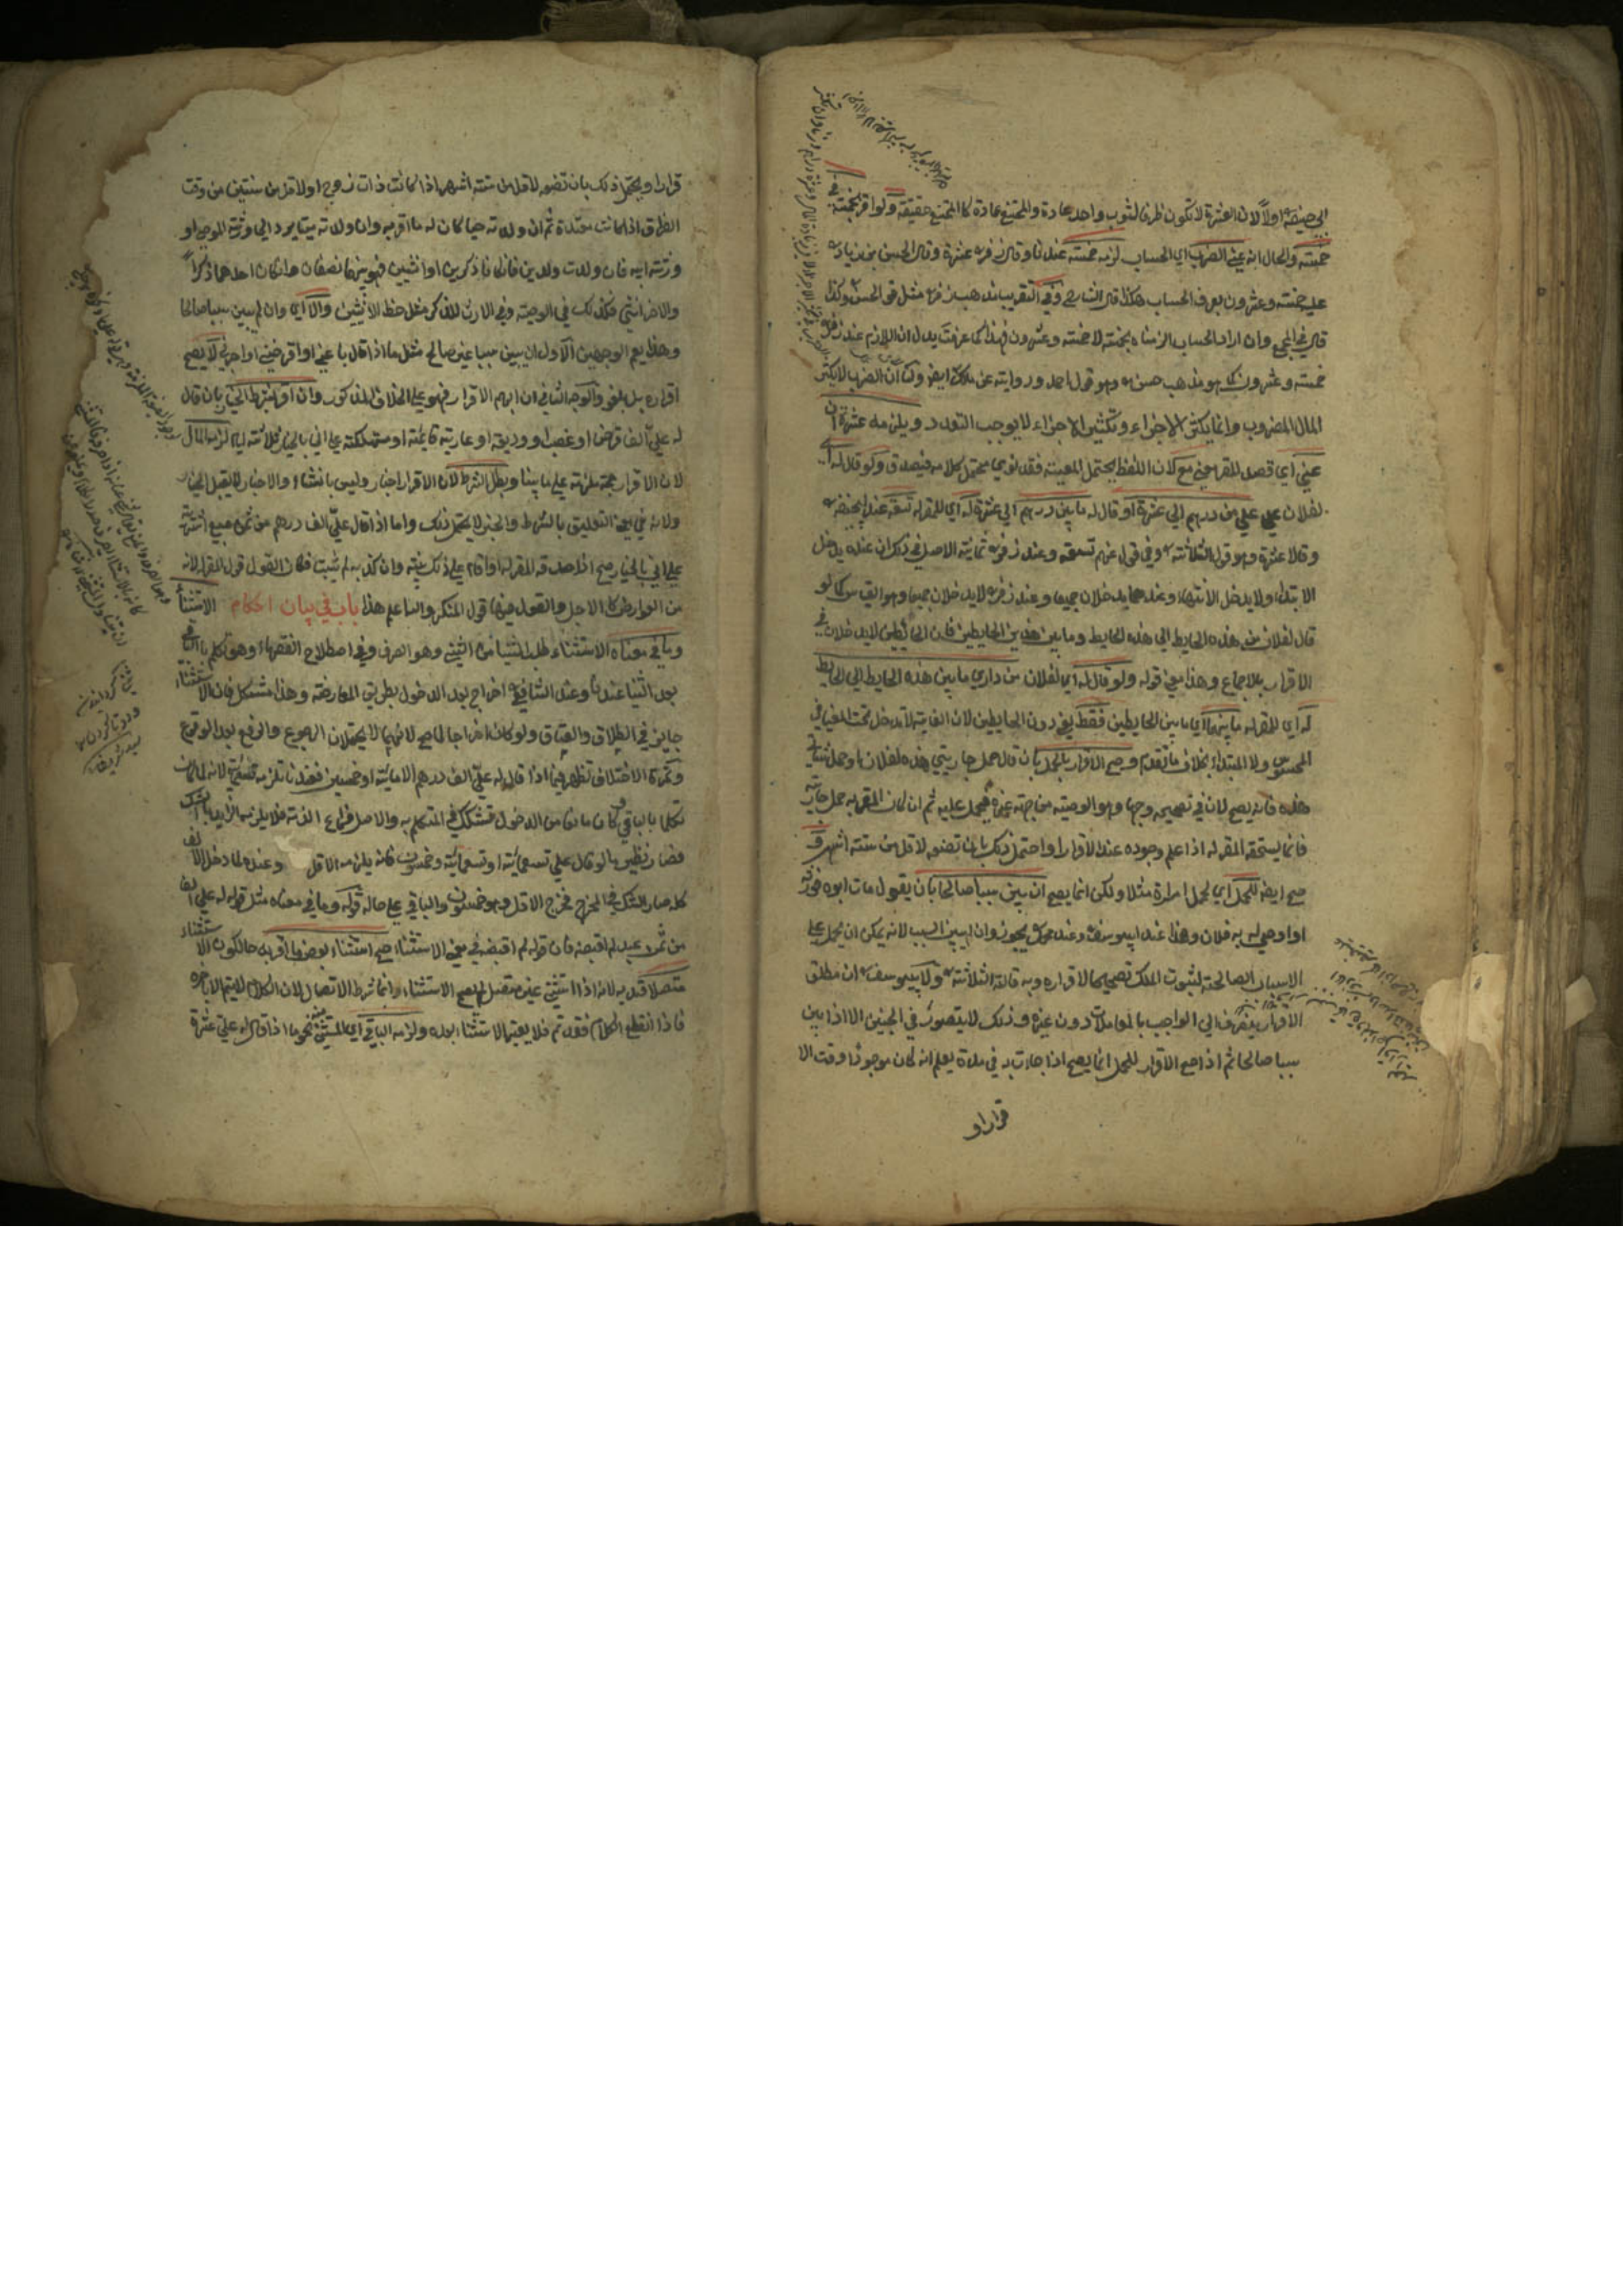 ابي حنيفة اولا لان العشرة لا تكون ظرفا لثوب واحد عادة والممتنع عادة كالممتنع حقيقة ولو اقر بخمسة في
خمسة والحال انه عنى الضرب اي الحساب لزمه خمسة عندنا وقال زفر عشرة وقال الحسن بن زياد
عليه خمسة وعشرون بعرف الحساب هكذا قال الشارح وفي التقريب مذهب زفر مثل قول الحسن وكذا
قال في المجمع وان اراد الحساب الزمناه بخمسة لا خمسة وعشرون فهذا كما عرفت يدل ان اللازم عند زفر
خمسة وعشرون كما هو مذهب حسن وهو قول احمد ورواية عن ملك ايضا ولنا ان الضرب لا يكثر
المال المضروب وانما يكثر الاجزاء وتكثير الاجزاء لا يوجب التعدد ويلزمه عشرة ان
عنى اي قصد المقر معنى مع لان اللفظ يحتمل المعية فقد نوى محتمل كلامه فيصدق ولو قال له اي
لفلان علي من درهم الى عشرة او قال له ما بين درهم الى عشرة له اي للمقر له تسعة عند ابي حنيفة
وقالا عشرة وهو قول الثلاثة وفي قول عنهم تسعة وعند زفر ثمانية الاصل في ذلك ان عنده يدخل
الابتداء ولا يدخل الانتهاء وعندهما يدخلان جميعا وعند زفر لا يدخلان جميعا وهو القياس كما لو
قال لفلان من هذه الحايط الى هذه الحايط وما بين هذين الحايطين فان الحائطين لا يدخلان في
الاقرار بالاجماع وهذا معنى قوله ولو قال له اي لفلان من داري ما بين هذه الحايط الى الحايط
له اي للمقر له ما بينهما اي ما بين الحايطين فقط يعني دون الحايطين لان الغاية لا تدخل تحت المغيا في
المحسوس ولا المبتداء بخلاف ما تقدم وصح الاقرار بالحمل بان قال حمل جاريتي هذه لفلان او حمل شاتي
هذه فانه يصح لان في تصحيحه وجها وهو الوصية من جهة غيره فيحمل عليه ثم ان كان المقر به حمل جارية
فانما يستحقه المقر له اذا علم وجوده عند الاقرار واحتمل ذلك بان تضعه لاقل من ستة اشهر و
صح ايضا للحمل اي لحمل امراة مثلا ولكن انما يصح ان بين سببا صالحا بان يقول مات ابوه فورثه
او اوصى له به فلان وهذا عند ابي يوسف وعند محمد يجوز وان لم يبين السبب لانه يمكن ان يحمل على
الاسباب الصالحة لثبوت الملك تصحيحا لاقراره وبه قالت الثلاثة ولابي يوسف ان مطلق
الاقرار ينصرف الى الواجب بالمعاملات دون غيره وذلك لا يتصور في الجنين الا اذا بين
سببا صالحا ثم اذا صح الاقرار للحمل انما يصح اذا جاءت به في مدة يعلم انه كان موجودا وقت الا
قرارا و
قرارا ويحتمل ذلك بان تضعه لاقل من ستة اشهر اذا كانت ذات زوج او لاقل من سنتين من وقت
الطلاق اذا كانت معتدة ثم ان ولدته حيا كان له ما اقر به وان ولدته ميتا يرد الى ورثة الموصي او
ورثة ابيه فان ولدت ولدين فان كانا ذكرين او انثيين فهو بينهما نصفان وان كان احدهما ذكرا
والاخر انثى فكذلك في الوصية وفي الارث للذكر مثل حظ الانثيين والا اي وان لم يبين سببا صالحا
وهذا يعم الوجهين الاول ان يبين سببا غير صالح مثل ما اذا قال باعني او اقرضني او اجرني لا يصح
اقراره بل يلغو والوجه الثاني ان ابهم الاقرار فهو على الخلاف المذكور وان اقر بشرط الخيار بان قال
له علي الف قرض او غصب او وديعة او عارية قائمة او مستهلكة على اني بالخيار ثلاثة ايام لزمه المال
لان الاقرار حجة ملزمة على ما بينا وبطل الشرط لان الاقرار اخبار وليس بانشاء والاخبار لا يقبل الخيار
ولانه في معنى التعليق بالشرط والخبر لا يحتمل ذلك واما اذا قال علي الف درهم من ثمن مبيع اشتريته
على اني بالخيار صح اذا صدقه المقر له او اقام على ذلك بينة وان كذبه لم يثبت فكان القول قول المقر له لانه
من العوارض كالاجل والقول فيها قول المنكر والله اعلم هذا باب في بيان احكام الاستثناء
وما في معناه الاستثناء طلب الثنيا من الثني وهو الصرف وفي اصطلاح الفقهاء وهو تكلم بالباقي
بعد الثنيا عندنا وعند الشافعي اخراج بعد الدخول بطريق المعارضة وهذا مشكل فان الاستثناء
جايز في الطلاق والعتاق ولو كان اخراجا لما صح لانهما لا يحتملان الرجوع والرفع بعد الوقوع
وثمرة الاختلاف تظهر فيما اذا قال له علي الف درهم الا مائة او خمسين فعندنا تلزمه تسعمائة لانه لما كان
تكلما بالباقي كان مانعا من الدخول فشككنا في المتكلم به والاصل فراغ الذمة فلا يلزمه الزايد بالشك
فصار نظير ما لو قال علي تسعمائة او تسعمائة وخمسون فانه يلزمه الاقل وعنده لما دخل الالف
كله صار الشك في المخرج فخرج الاقل وهو خمسون والباقي على حاله قوله وما في معناه مثل قوله له علي الف
من ثمن عبد لم اقبضه فان قوله لم اقبضه في معنى الاستثناء صح استثناء بعض ما اقر به حال كون الاستثناء
متصلا قيد به لانه اذا استثنى غير متصل لم يصح الاستثناء وانما شرط الاتصال لان الكلام لا يتم الا باخره
فاذا انقطع الكلام فقد تم فلا يعتبر الاستثناء بعده ولزمه الباقي اي المستثنى منه نحو ما اذا قال له علي عشرة